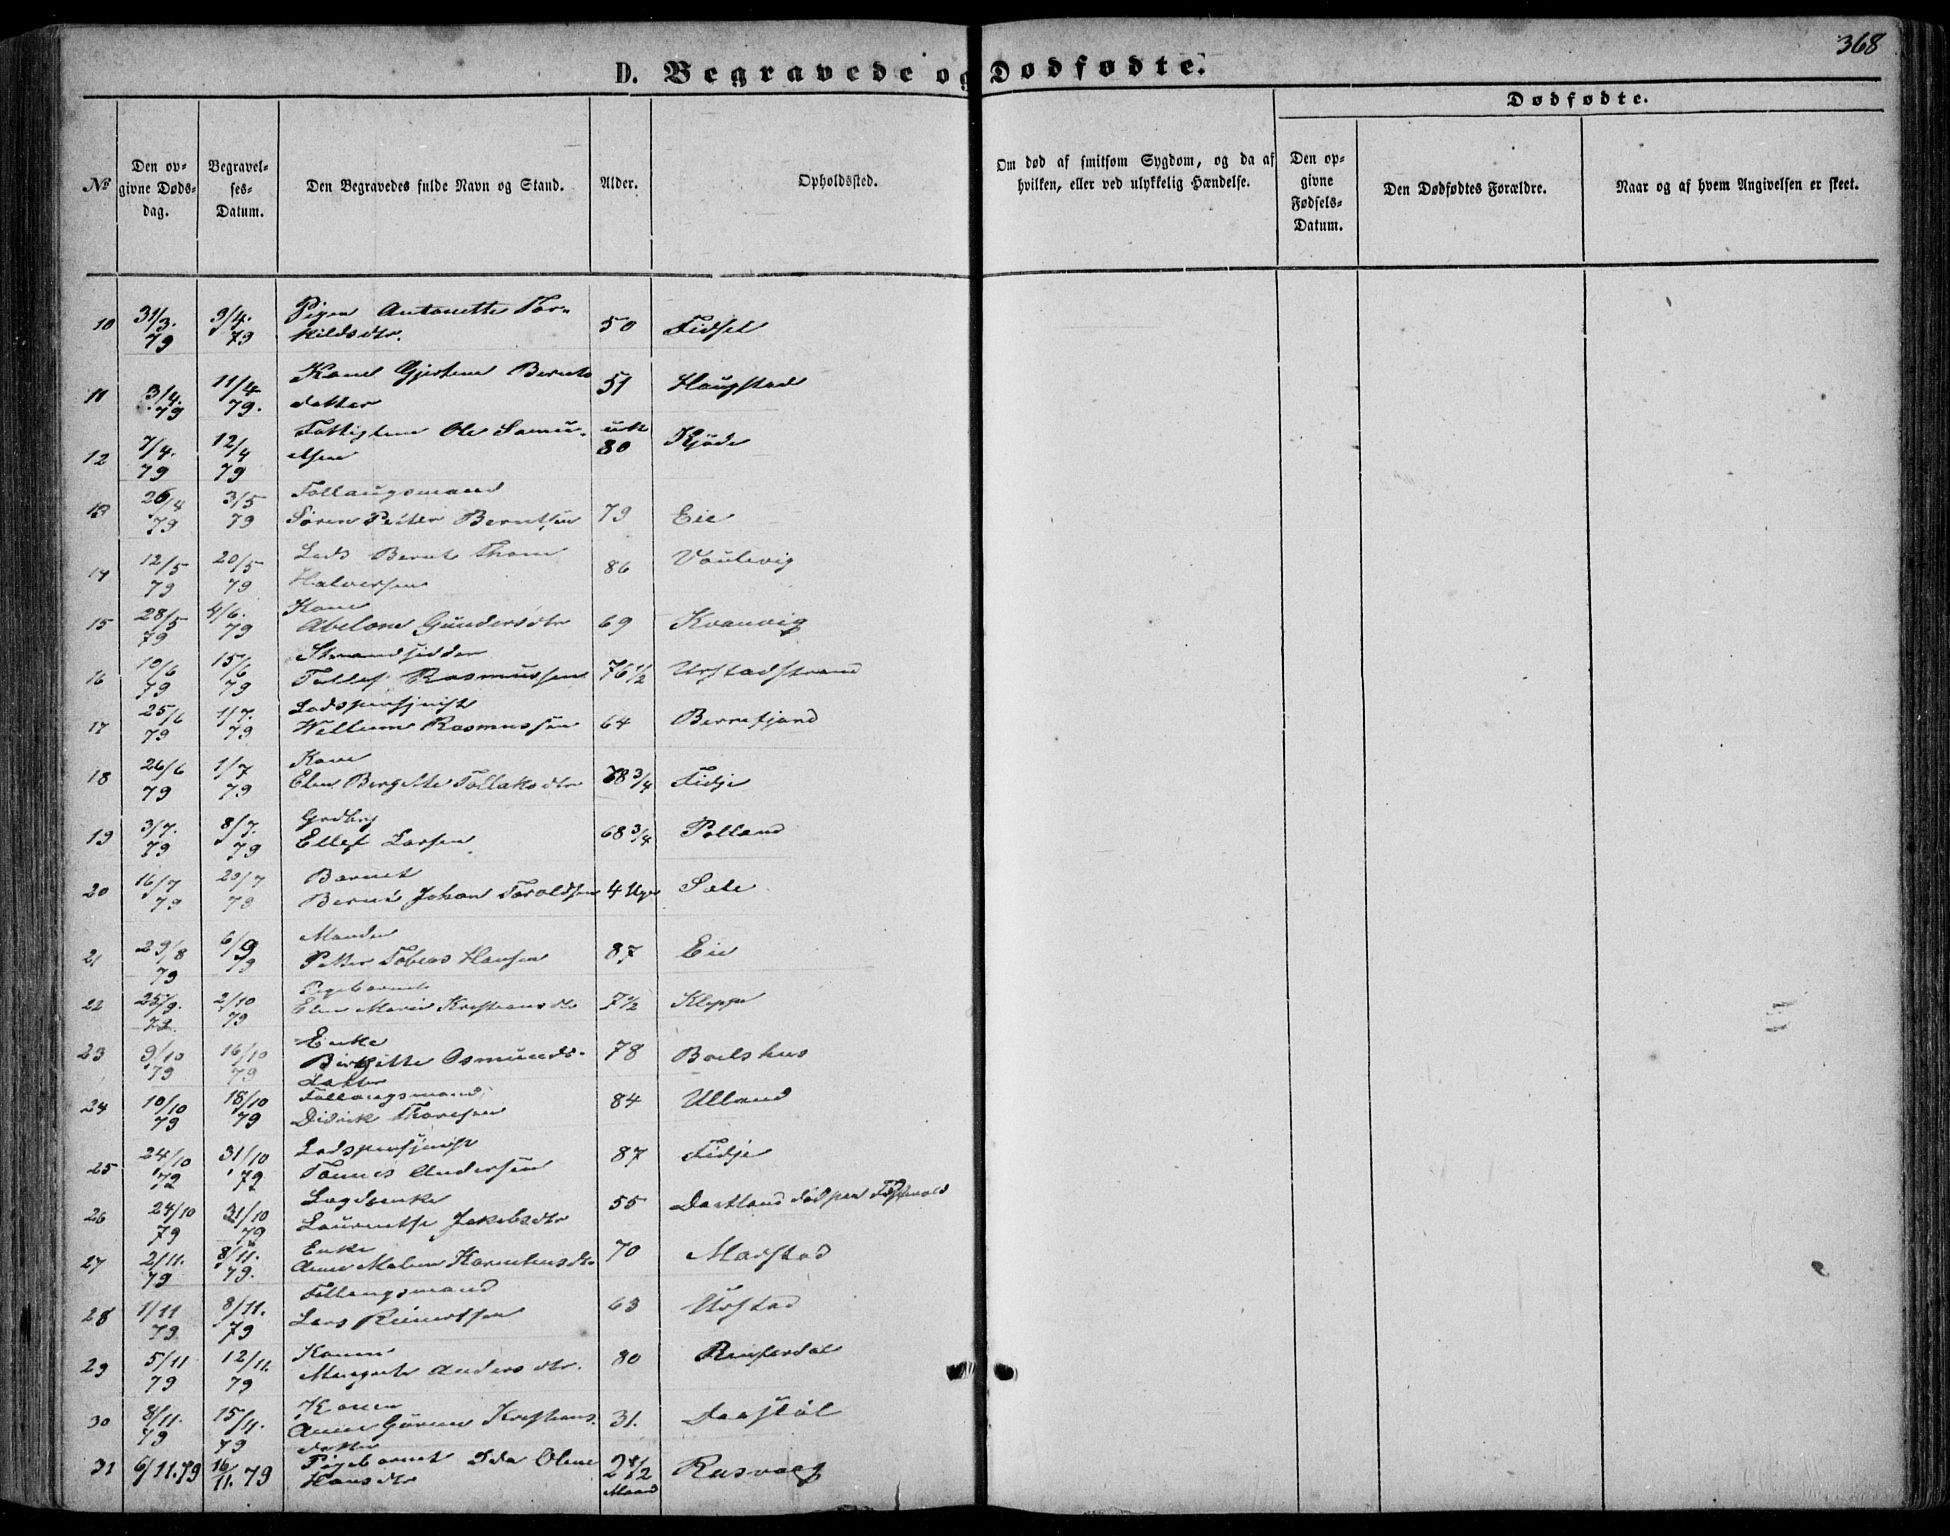 368
D. Begravede og Dødfødte.
Dødfødte.
No
Den opgivne Døds-dag.
Begravel-ses-Datum.
Den Begravedes fulde Navn og Stand.
Alder.
Opholdssted.
Om død af smitsom Sygdom, og da af hvilken, eller ved ulykkelig Hændelse.
Den op-givne Fødsels-Datum.
Den Dødfødtes Forældre.
Naar og af hvem Angivelsen er skeet.
10 31/3. 79 9/4. 79 Pigen Antonette Tor-kildsdtr. 50 Fidsel
11 3/4. 79 11/4 79. Kone Gjertine Bernts datter 51 Haugstad
12 7/4. 79 12/4 79 Fattiglem Ole Samu-elsen 80 Kjøde
13 26/4 79 3/5 79 Follaugsmand Søren Peiter Berntsen 79 Eie
14 12/5 79 20/5 79 Lods Bernt Thom Halversen 86 Vaulevig
15 28/5 79 4/6. 79 Kone Abelone Gundersdtr 69 Kvanvig
16 10/6 79 15/6 79 Strandsidder Tellef Rasmussen 76 1/2 Urstadstrand
17 25/6 79 1/7. 79 Lodspensjonist Willum Rasmussen 64 Berrefjord
18 26/6 79 1/7 79 Kone Elen Bergitte Tollaksdtr 3/4 Fidje
19 3/7. 79 8/7. 79 Grdbrg Ellef Larsen 68 3/4 Polland
20 16/7 79 20/7 79 Barnet Johan Taroldsen 4 Uger Sæle
21 29/8 79 6/9 79 Manden Petter Tobias Hansen 87 Eie
22 25/9. 79 2/10 79 Pigebarnet Elen Marie Kristiansdtr 7 1/2 Kleppe
23 9/10 79 16/10 79 Enke Birgitte Osmunds-datter 78 Boelshus
24 10/10 79 18/10 79 Follaugsmand Didrik Thoresen 84 Ulland
25 24/10 79 31/10 79 Lodspensjonist Tønnes Andersen 87 Fidje
26 24/10 79 31/10 79 Lægdsenke Laurentse Jakobsdtr 55 Dastland død paa
27 2/11. 79 8/11. 79. Enke Anne Malene Korneliusdtr 70 Marstad
28 1/11 79 8/11. 79 Follaugsmand Lars Reinertsen 63 Urstad
29 5/11 79 12/11. 79 Konen Margrete Andersdtr. 80 Reiserdal
30 8/11. 79 15/11. 79 Konen Anne Gurine Kristians-datter 31. Daastøl
31 6/11.79 16/11. 79 Pigebarnet Ida Oline Hansdtr 2 1/2 Maaned Rasvaag